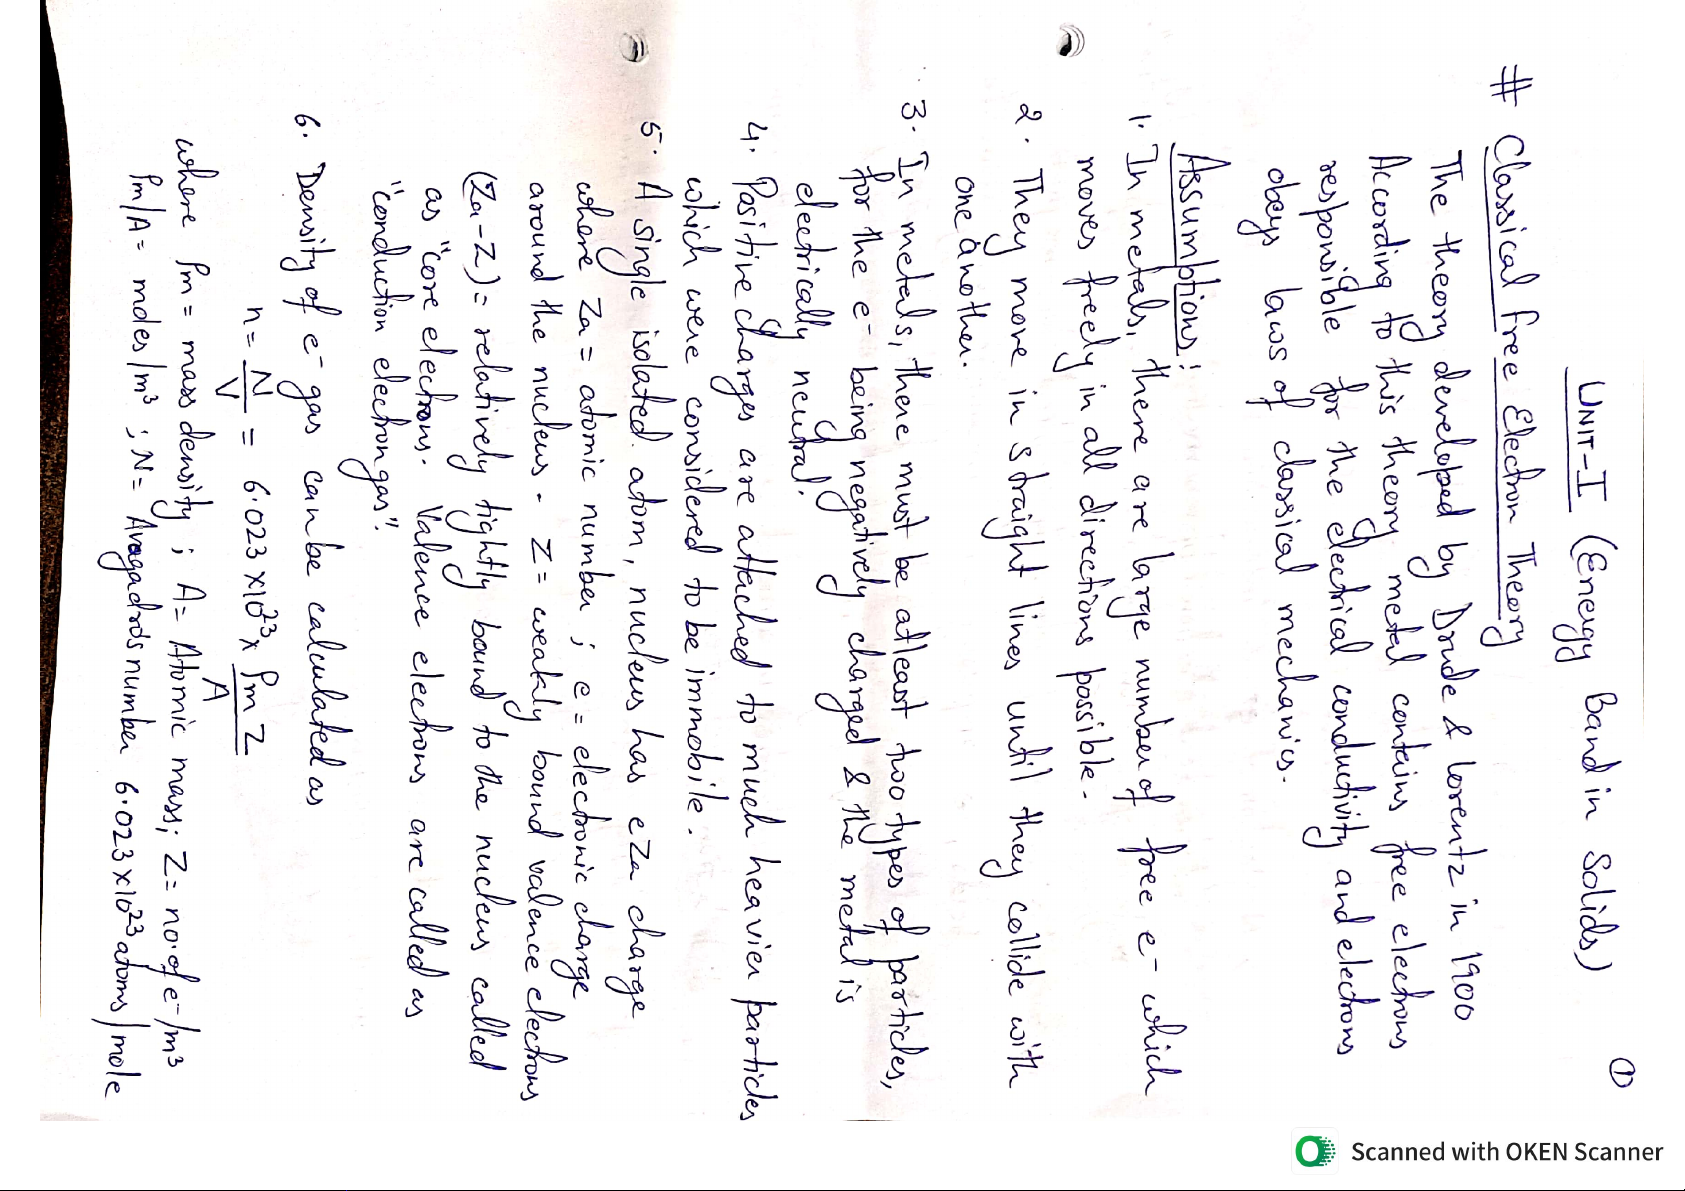 ①
UNIT-I (Energy Band in Solids)
# Classical Free Electron Theory
The theory developed by Drude & Lorentz in 1900
According to this theory, metal contains free electrons
responsible for the electrical conductivity and electrons
obeys laws of classical mechanics.
Assumptions:
1. In metals, there are large number of free e- which
moves freely in all directions possible.
2. They move in straight lines until they collide with
one another.
3. In metals, there must be atleast two types of particles,
for the e- being negatively charged & the metal is
electrically neutral.
4. Positive charges are attached to much heavier particles
which were considered to be immobile.
5. A single isolated atom, nucleus has eZa charge
where Za = atomic number ; e = electronic charge
around the nucleus. Z = weakly bound valence electrons
(Za-Z) = relatively tightly bound to the nucleus called
as "core electrons. Valence electrons are called as
"conduction electron gas".
6. Density of e- gas can be calculated as
n = N/V = 6.023 x 10²³ x ρm Z/A
where ρm = mass density ; A = Atomic mass; Z = no. of e-/m³
ρm/A = moles/m³ ; N = Avagadros number 6.023 x 10²³ atoms/mole
Scanned with OKEN Scanner